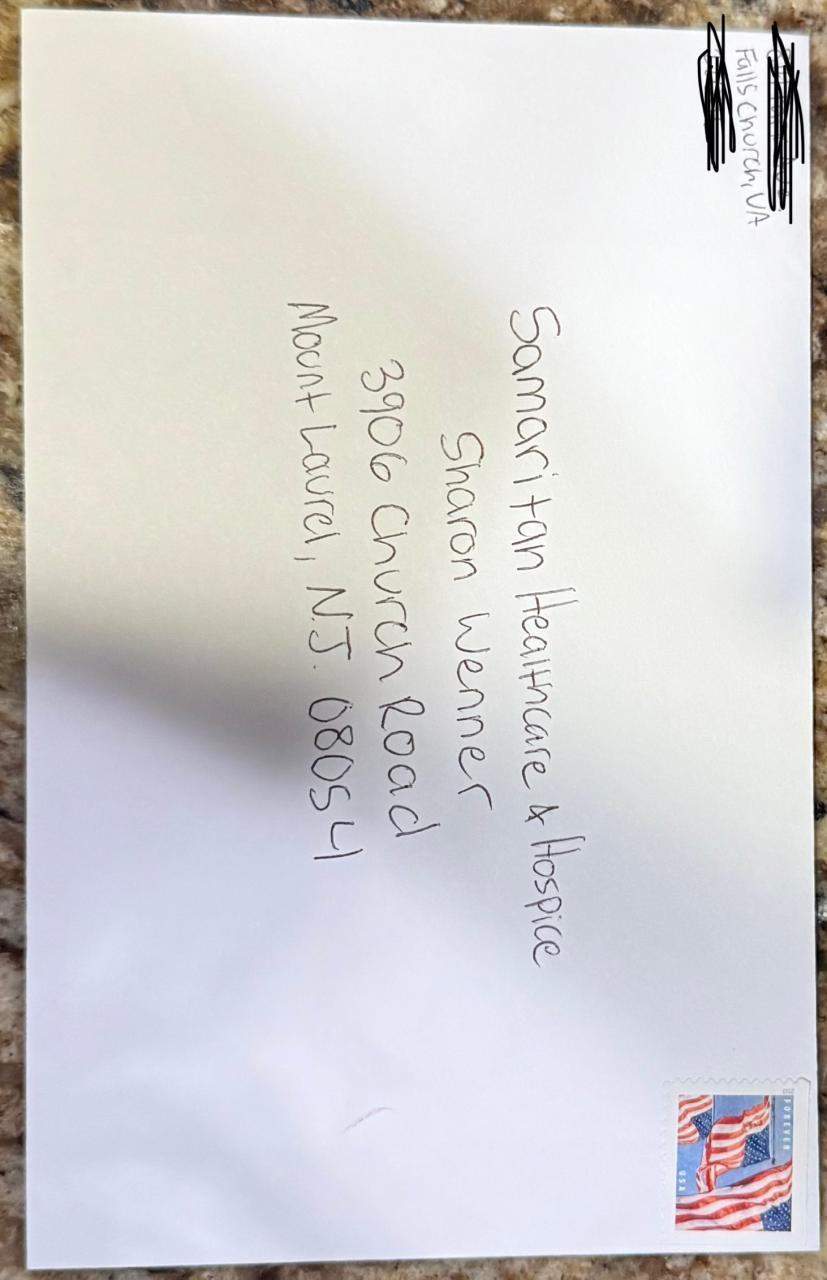 Falls Church, VA
Samaritan Healthcare & Hospice
Sharon Wenner
3906 Church Road
Mount Laurel, N.J. 08054
FOREVER
USA